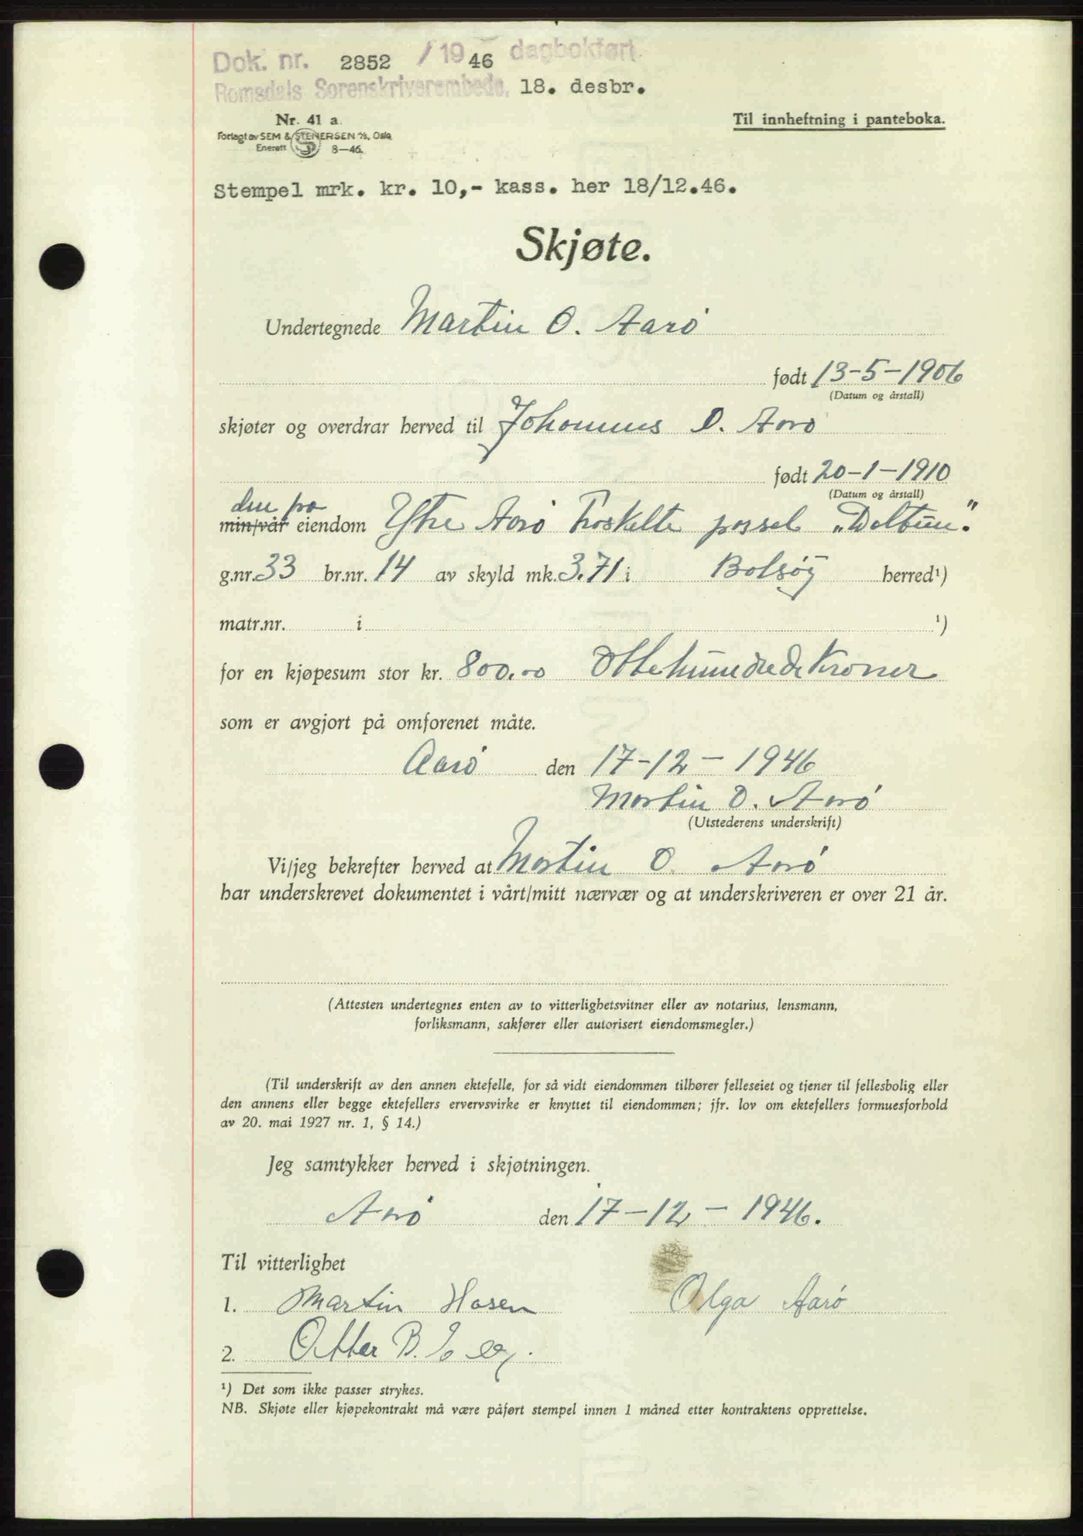 Dok. nr. 2852 / 1946 dagbokført
Romsdals Sorenskriverembede, 18. desbr.
Nr. 41 a.
Forlagt av SEM & STENERSEN A/S, Oslo
Enerett 8—46.
Til innheftning i panteboka.
Stempel mrk. kr. 10,- kass. her 18/12.46.
Skjøte.
Undertegnede Martin O. Aarø
født 13-5-1906
(Datum og årstall)
skjøter og overdrar herved til Johannes O. Aarø
født 20-1-1910
(Datum og årstall)
den fra
min/vår eiendom Ytre Aarø fraskelte parsel
g.nr. 33 br.nr. 14 av skyld mk. 3.71 i Bolsøy herred¹)
matr.nr. i ¹)
for en kjøpesum stor kr. 800,00 Ottehundrede Kroner
som er avgjort på omforenet måte.
Aarø den 17-12-1946
Martin O. Aarø
(Utstederens underskrift)
Vi/jeg bekrefter herved at Martin O. Aarø
har underskrevet dokumentet i vårt/mitt nærvær og at underskriveren er over 21 år.
(Attesten undertegnes enten av to vitterlighetsvitner eller av notarius, lensmann,
forliksmann, sakfører eller autorisert eiendomsmegler.)
(Til underskrift av den annen ektefelle, for så vidt eiendommen tilhører felleseiet og tjener til fellesbolig eller
den annens eller begge ektefellers ervervsvirke er knyttet til eiendommen; jfr. lov om ektefellers formuesforhold
av 20. mai 1927 nr. 1, § 14.)
Jeg samtykker herved i skjøtningen.
Aarø den 17-12-1946.
Til vitterlighet
1. Martin Hasen Olga Aarø
2. Otter B.
¹) Det som ikke passer strykes.
NB. Skjøte eller kjøpekontrakt må være påført stempel innen 1 måned etter kontraktens opprettelse.